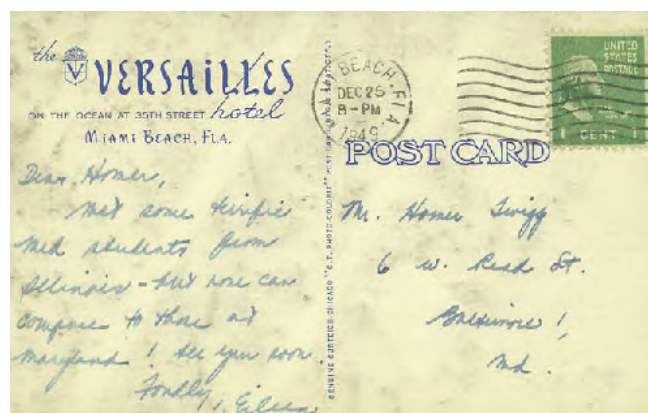 the
VERSAILLES
hotel
ON THE OCEAN AT 35TH STREET
MIAMI BEACH, FLA.
Dear Homer,
Met some terrific
med students from
Illinois - but none can
compare to those at
Maryland! See you soon.
Fondly, Eileen
GENUINE CURTEICH-CHICAGO "C.T. PHOTO-COLORIT" POST CARD
BEACH FLA
DEC 25
8-PM
1949
UNITED
STATES
POSTAGE
1 CENT 1
POST CARD
Mr. Homer Twigg
6 W. Read St.
Baltimore 1,
Md.